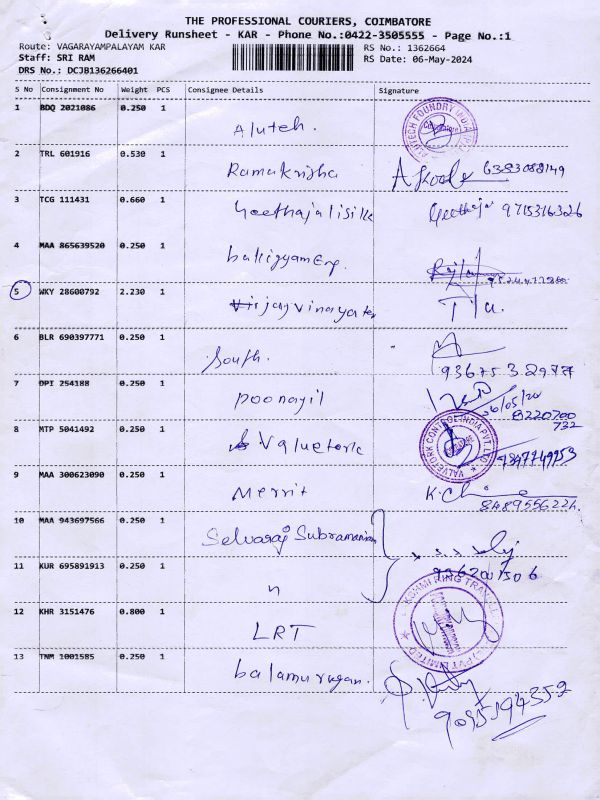 THE PROFESSIONAL COURIERS, COIMBATORE
Delivery Runsheet - KAR - Phone No.:0422-3505555 - Page No.:1
Route: VAGARAYAMPALAYAM KAR RS No.: 1362664
Staff: SRI RAM RS Date: 06-May-2024
DRS No.: DCJB136266401
S No Consignment No Weight PCS Consignee Details Signature
1 BDQ 2021086 0.250 1 Aluteh.
2 TRL 601916 0.530 1 Ramakrisha 6383088149
3 TCG 111431 0.660 1 Geethajalisilk Geethaja 9715316326
4 MAA 865639520 0.250 1
5 WKY 28600792 2.230 1
6 BLR 690397771 0.250 1 South. 9367532977
7 DPI 254188 0.250 1 poonayil 8220700
732
8 MTP 5041492 0.250 1 Valuetork
VALVETORK CONTROL INDIA PVT. LTD.
9 MAA 300623090 0.250 1 Merrit
10 MAA 943697566 0.250 1 Selvaraj Subramaniam
11 KUR 695891913 0.250 1 n
12 KHR 3151476 0.800 1 LRT
LAKSHMI RING TRAVELLERS
13 TNM 1001585 0.250 1 balamurugan.
9095194352